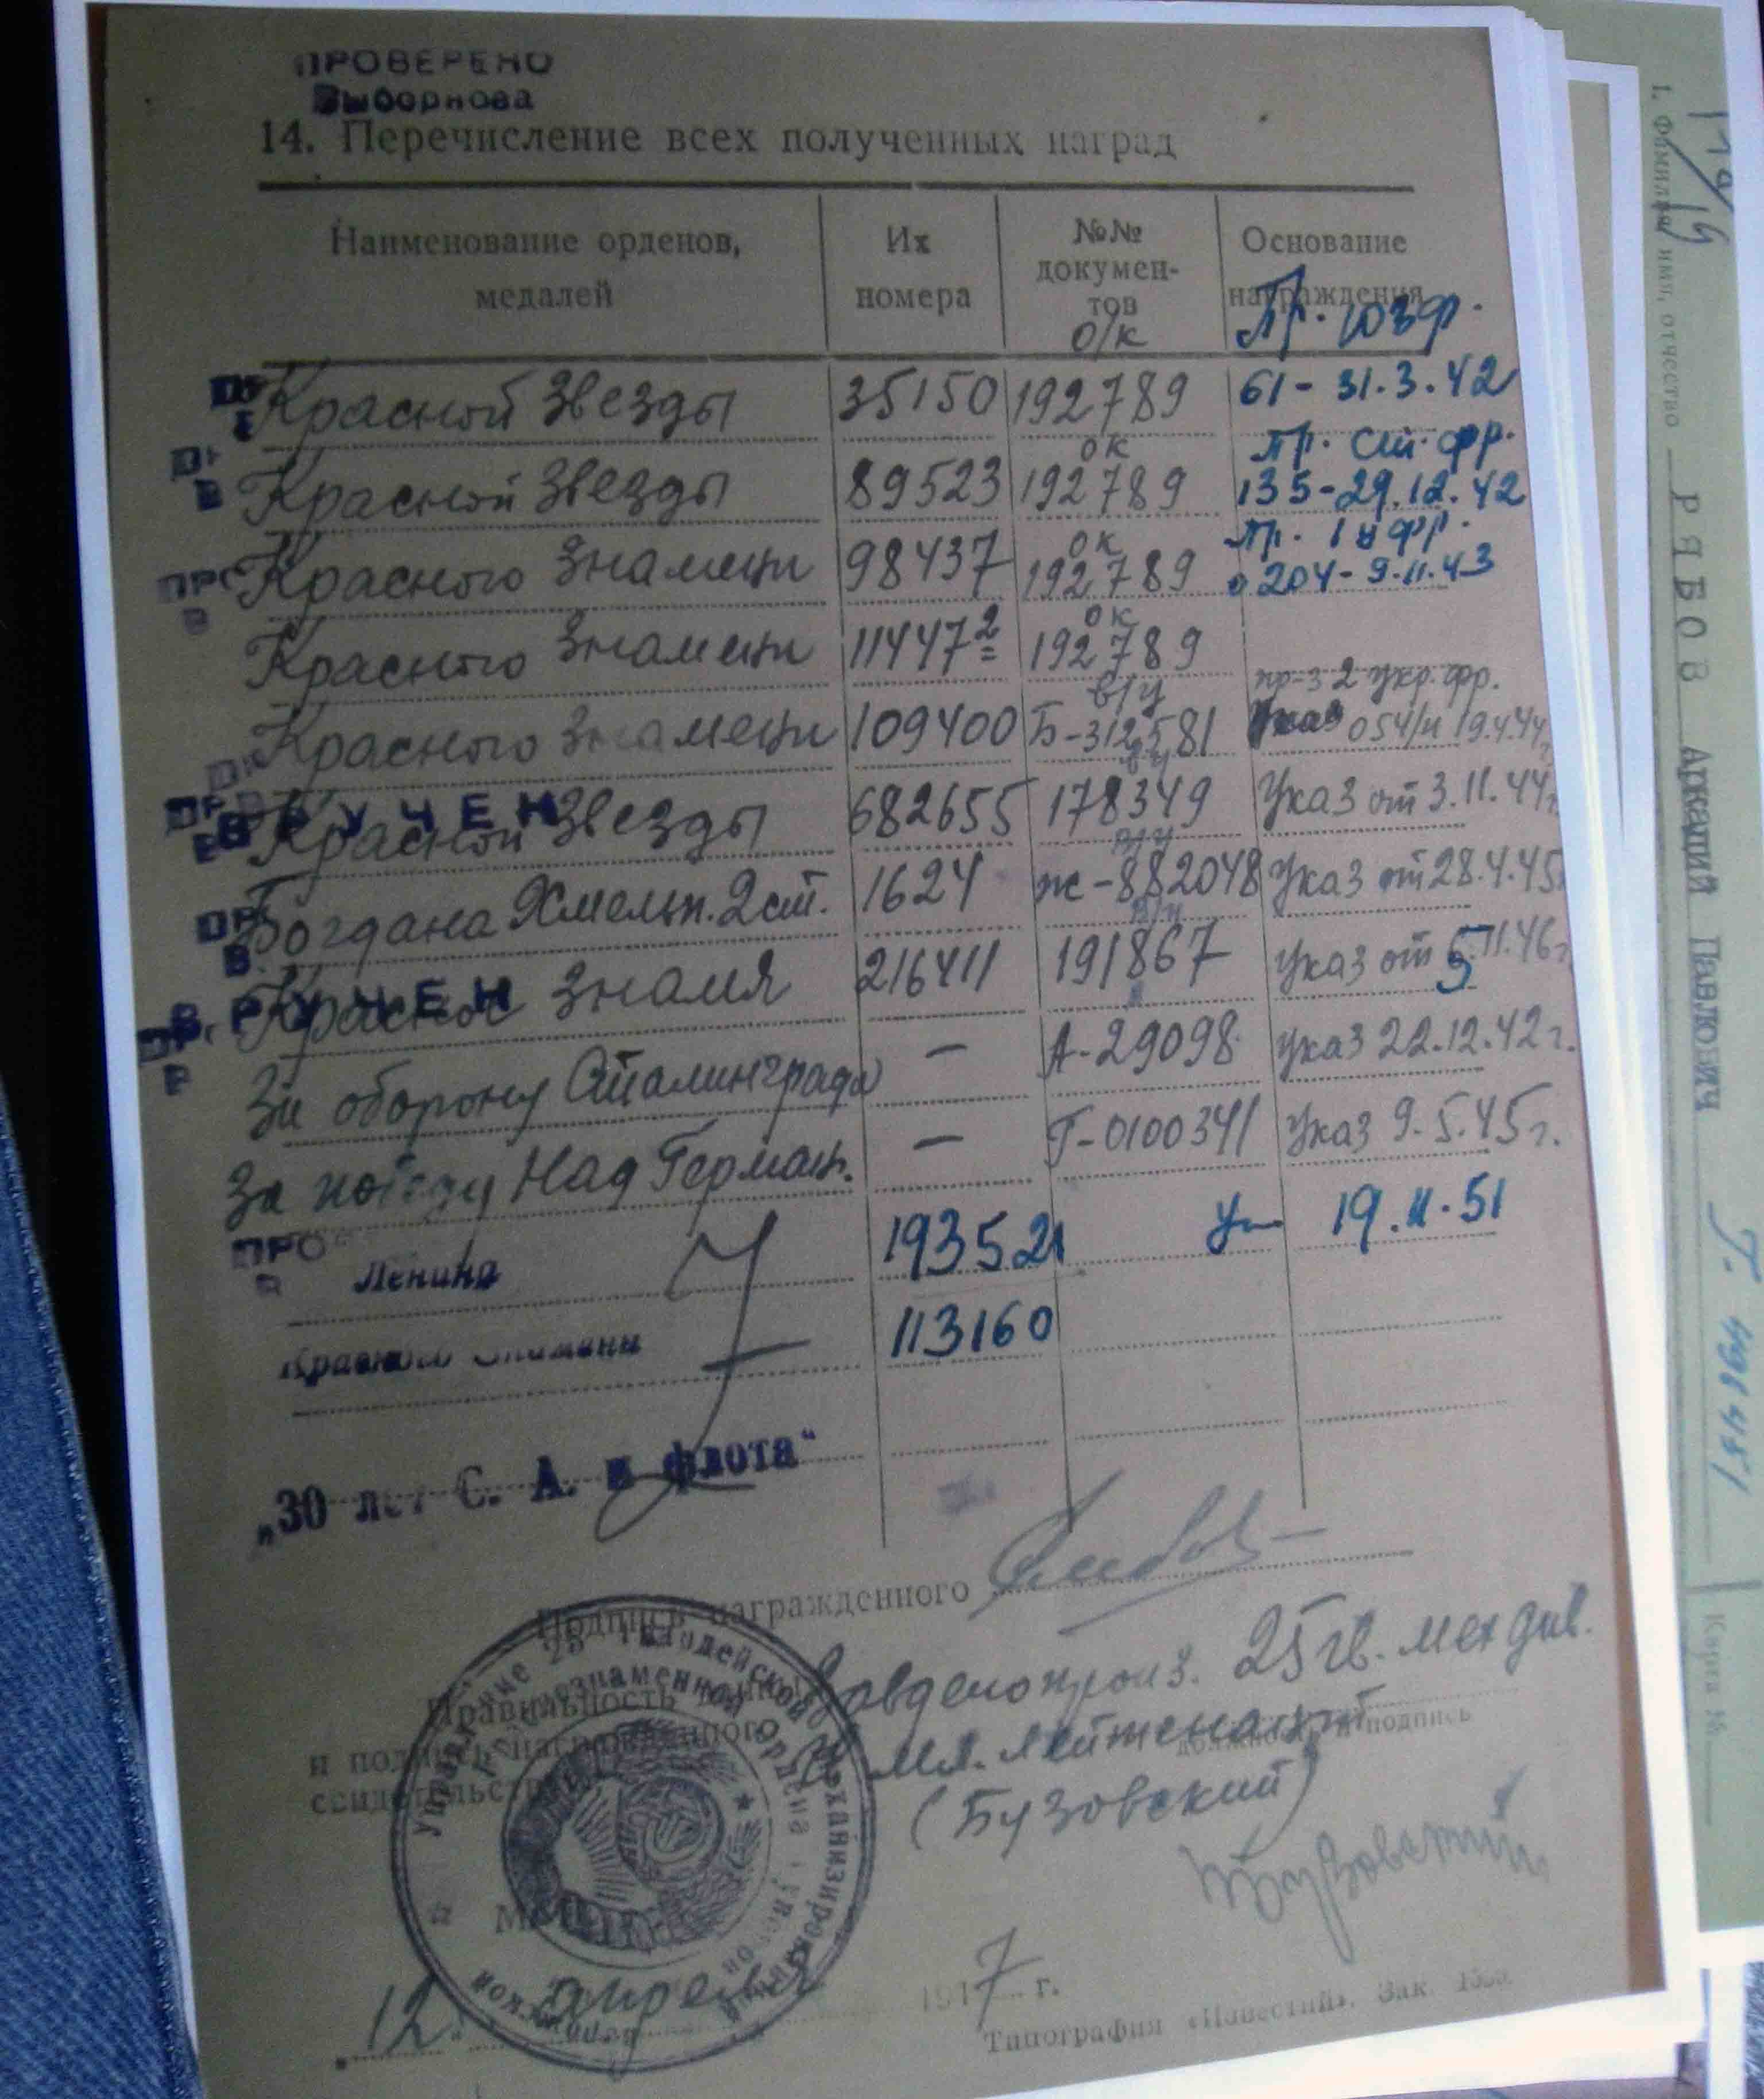 ПРОВЕРЕНО
Выборнова
14. Перечисление всех полученных наград
Наименование орденов, медалей
Их номера
№№ документов
Основание награждения
о/к Пр. ЮЗФ.
Красной Звезды 35150 192789 61-31.3.42
ок Пр. Ст. фр.
Красной Звезды 89523 192789 135-29.12.42
ок Пр. 1 фр.
Красного Знамени 98437 192789 204-9.11.43
ок
Красного Знамени 114472 192789
в/у пр-з 2 укр. фр.
Красного Знамени 109400 Б-312581 Указ 054/н 19.4.44
ВРУЧЕН
Красной Звезды 682655 178349 Указ от 3.11.44г.
Богдана Хмельн. 2 ст. 1624 -882048 Указ от 28.4.45
ВРУЧЕН
Красное Знамя 216411 191867 Указ от 5.11.46г
За оборону Сталинграда — А-29098 Указ 22.12.42г.
За победу Над Герман. — Г-0100341 Указ 9.5.45г.
ПРО
Ленина 193521 19.11.51
Красного Знамени 113160
„30 лет С. А. и флота“
Подпись награжденного
Правильность
и подпись награжденного
свидетельств
Завделопроиз. 25 гв. мех див.
мл. лейтенант
подпись
(Бузовский)
Бузовский
12 апреля 1947 г.
Типография «Известий». Зак.
Управление 25 Гвардейской
Краснознаменной ордена
механизированной
1. Фамилия, имя, отчество РЯБОВ Аркадий Павлович
Книга №